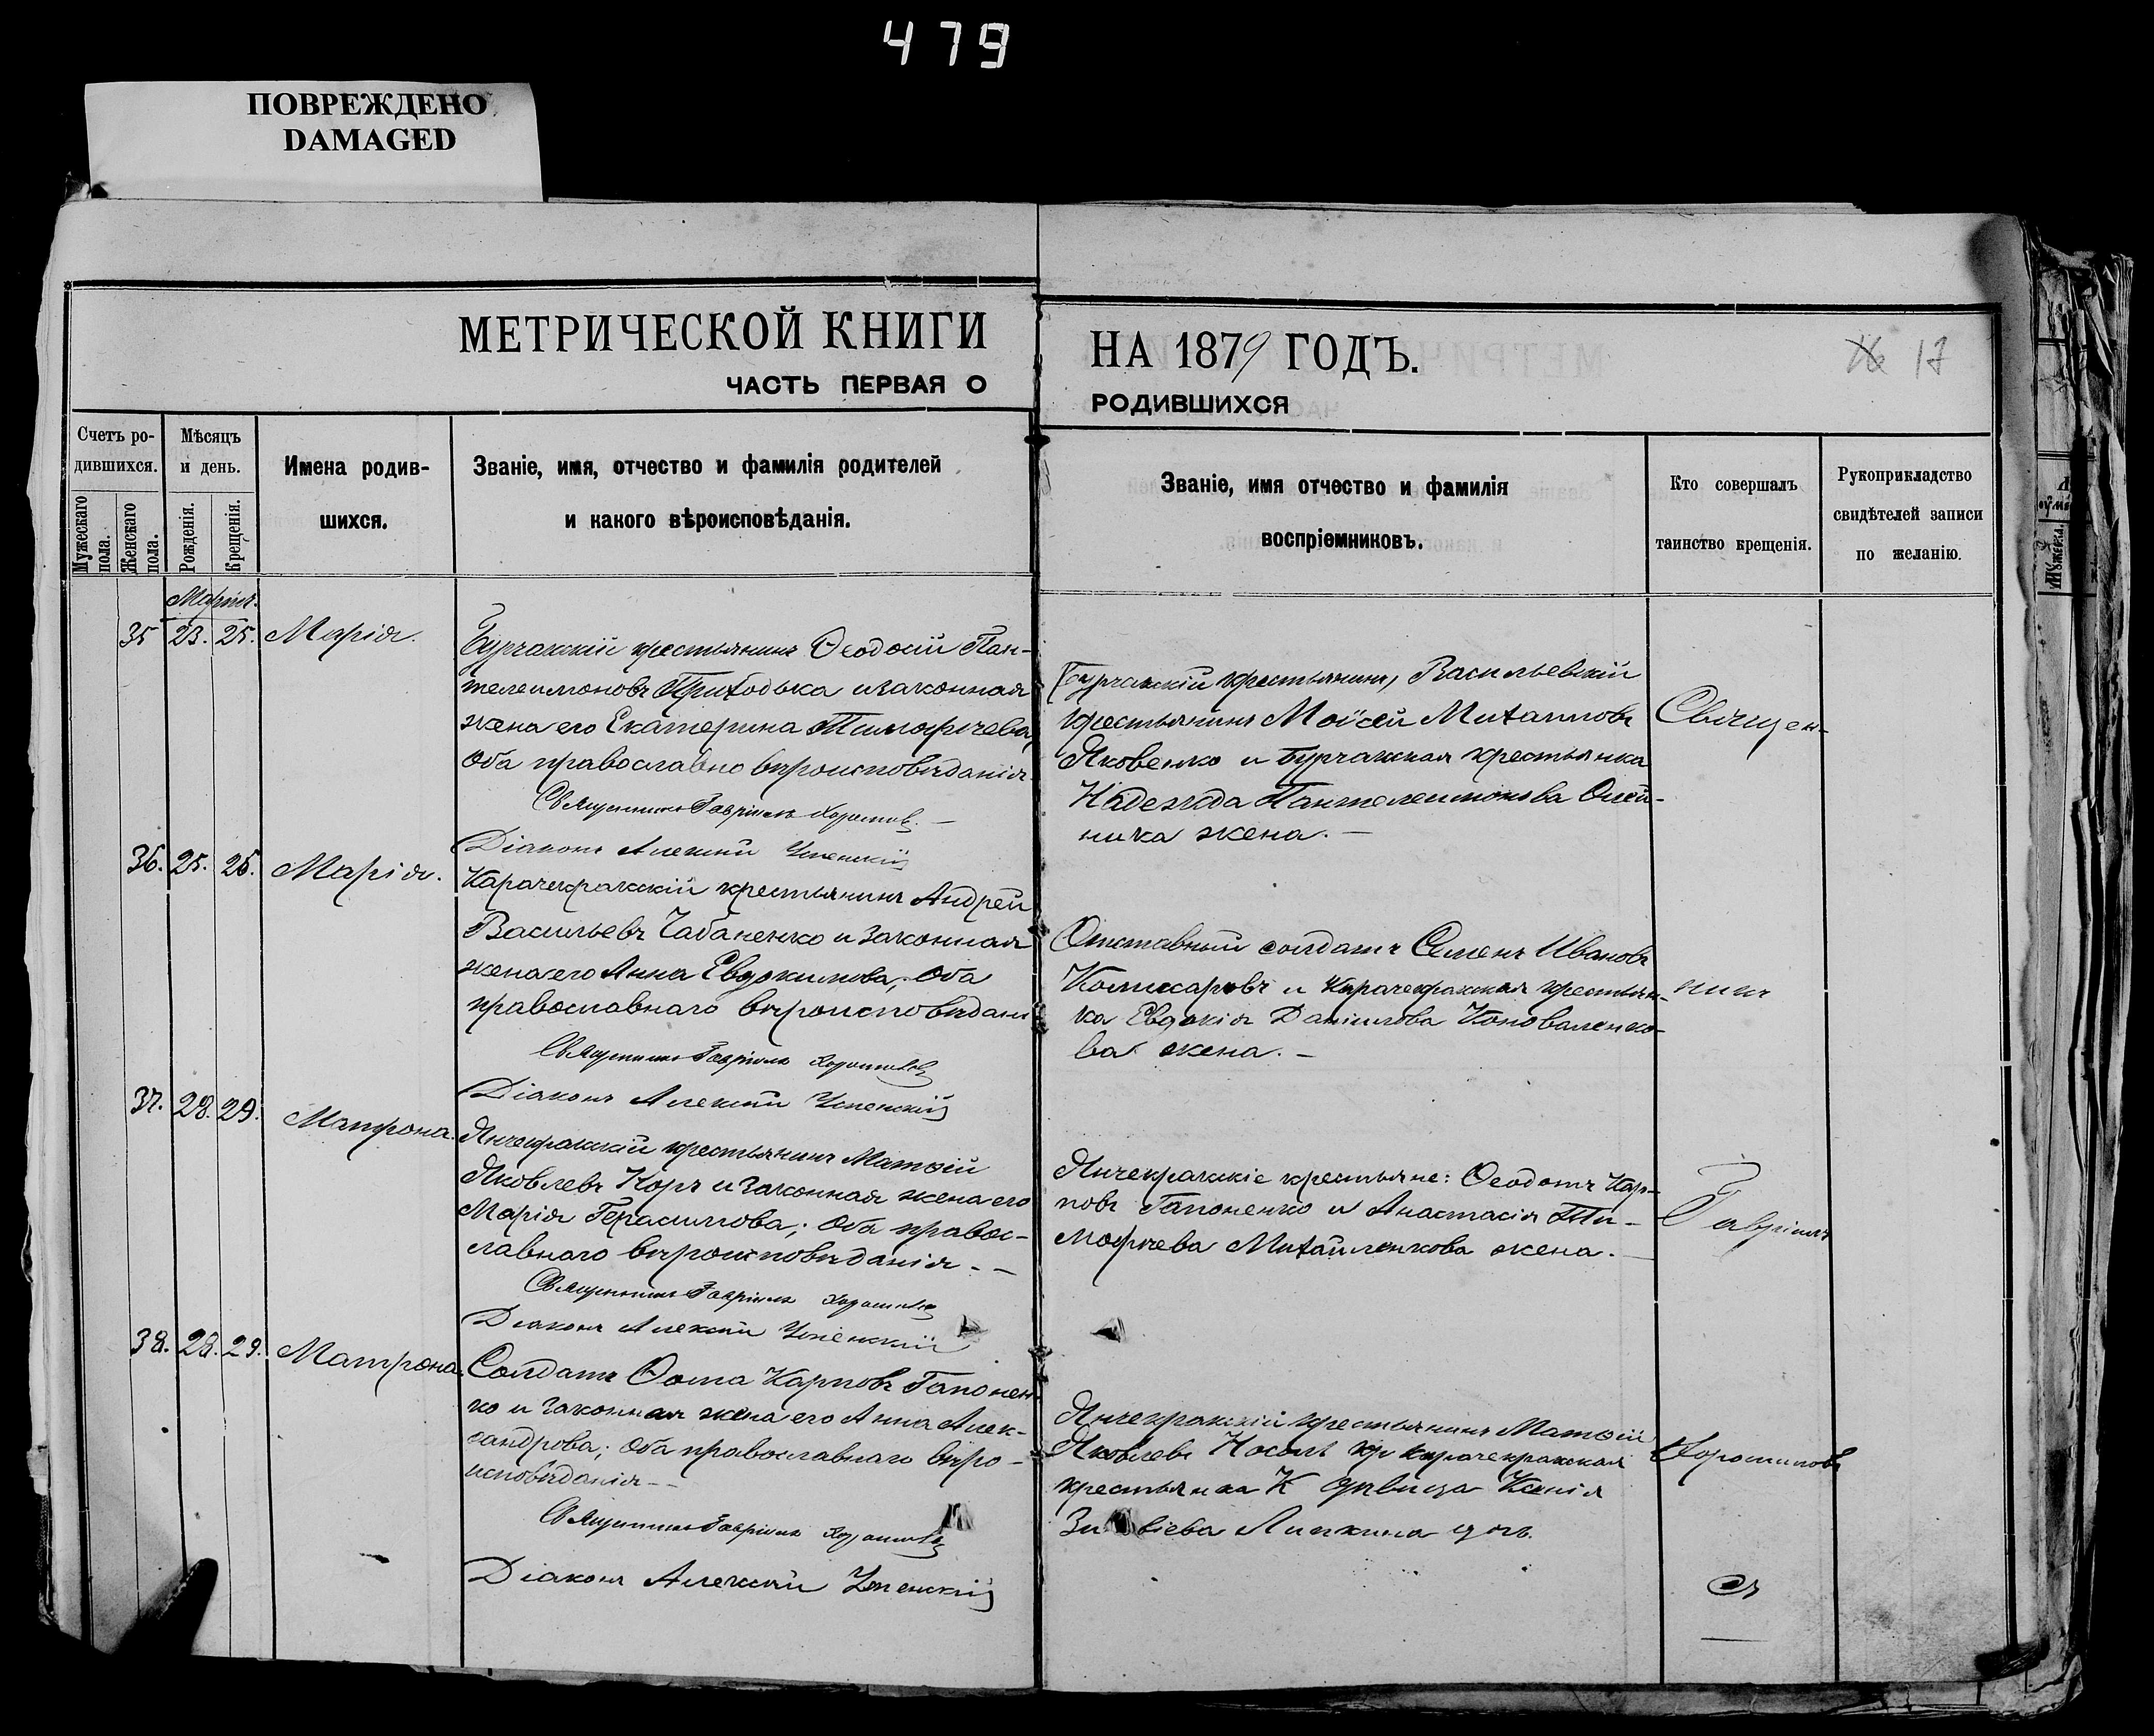 479
ПОВРЕЖДЕНО
DAMAGED
МЕТРИЧЕСКОЙ КНИГИ
ЧАСТЬ ПЕРВАЯ О
НА 1879 ГОДЪ.
РОДИВШИХСЯ
17
Счетъ ро-
дившихся.
Мужескаго пола.
Женскаго пола.
Мѣсяцъ
и день.
Рожденія.
Крещенія.
Имена родив-
шихся.
Званіе, имя, отчество и фамилія родителей
и какого вѣроисповѣданія.
Званіе, имя отчество и фамилія
воспріемниковъ.
Кто совершалъ
таинство крещенія.
Рукоприкладство
свидѣтелей записи
по желанію.
Марта.
35 23. 25. Марія.
Бурчакскій крестьянинъ Ѳеодосій Пан-
телеимоновъ Приходька и законная
жена его Екатерина Тимофѣева,
Оба православно вѣроисповѣданія
Священникъ Гавріилъ Хорошиловъ.
Діаконъ Алексій Успенскій
Бурчакскій крестьянинъ, Васильевскій
крестьянинъ Моѵсей Михаиловъ
Яковенко и Бурчакская крестьянка
Надежда Пантелеимонова Олей-
ника жена. –
36. 25. 26. Марія.
Карачекракскій крестьянинъ Андрей
Васильевъ Чабаненко и законная
жена его Анна Евдокимова; Оба
православнаго вѣроисповѣдані
Священникъ Гавріилъ Хорошиловъ
Діаконъ Алексій Успенскій
Отставный солдатъ Семенъ Ивановъ
Комисаровъ и Карачекракская крестьян-
ка Евдокія Даніилова Коноваленко-
ва жена. –
37. 28. 29. Матрона.
Янчекракскій крестьянинъ Матѳій
Яковлевъ Коръ и законная жена его
Марія Герасимова; Оба правос-
лавнаго вѣроисповѣданія. –
Священникъ Гавріилъ Хорошиловъ
Діаконъ Алексій Успенскій
Янчекракскіе крестьяне: Ѳеодотъ Кар-
повъ Гапоненко и Анастасія Ти-
мофѣева Михайленкова жена. –
38. 28. 29. Матрона
Солдатъ Ѳома Карповъ Гапонен-
ко и законная жена его Анна Алек-
сандрова; Оба православнаго вѣро-
исповѣданія –
Священникъ Гавріилъ Хорошиловъ
Діаконъ Алексій Успенскій
Янчекракскій крестьянинъ Матѳій
Яковлевъ карачекракская
крестьянка дѣвица Ксенія
дочь.
Священ-
никъ
Гавріилъ
Хорошиловъ